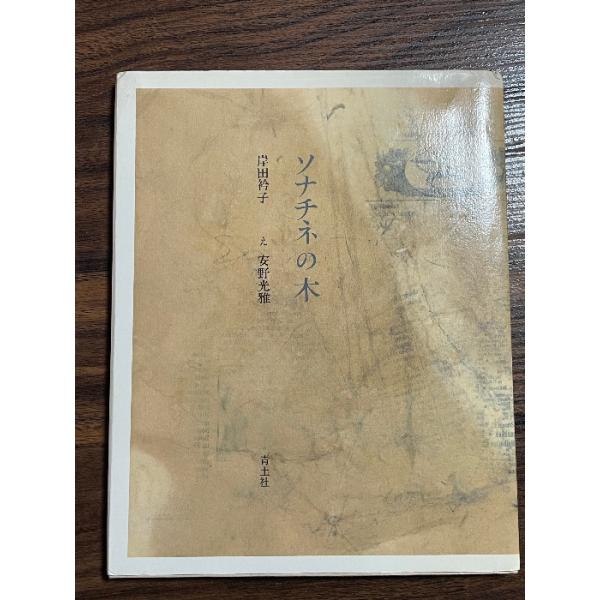 ソナチネの木
岸田衿子
え 安野光雅
青土社